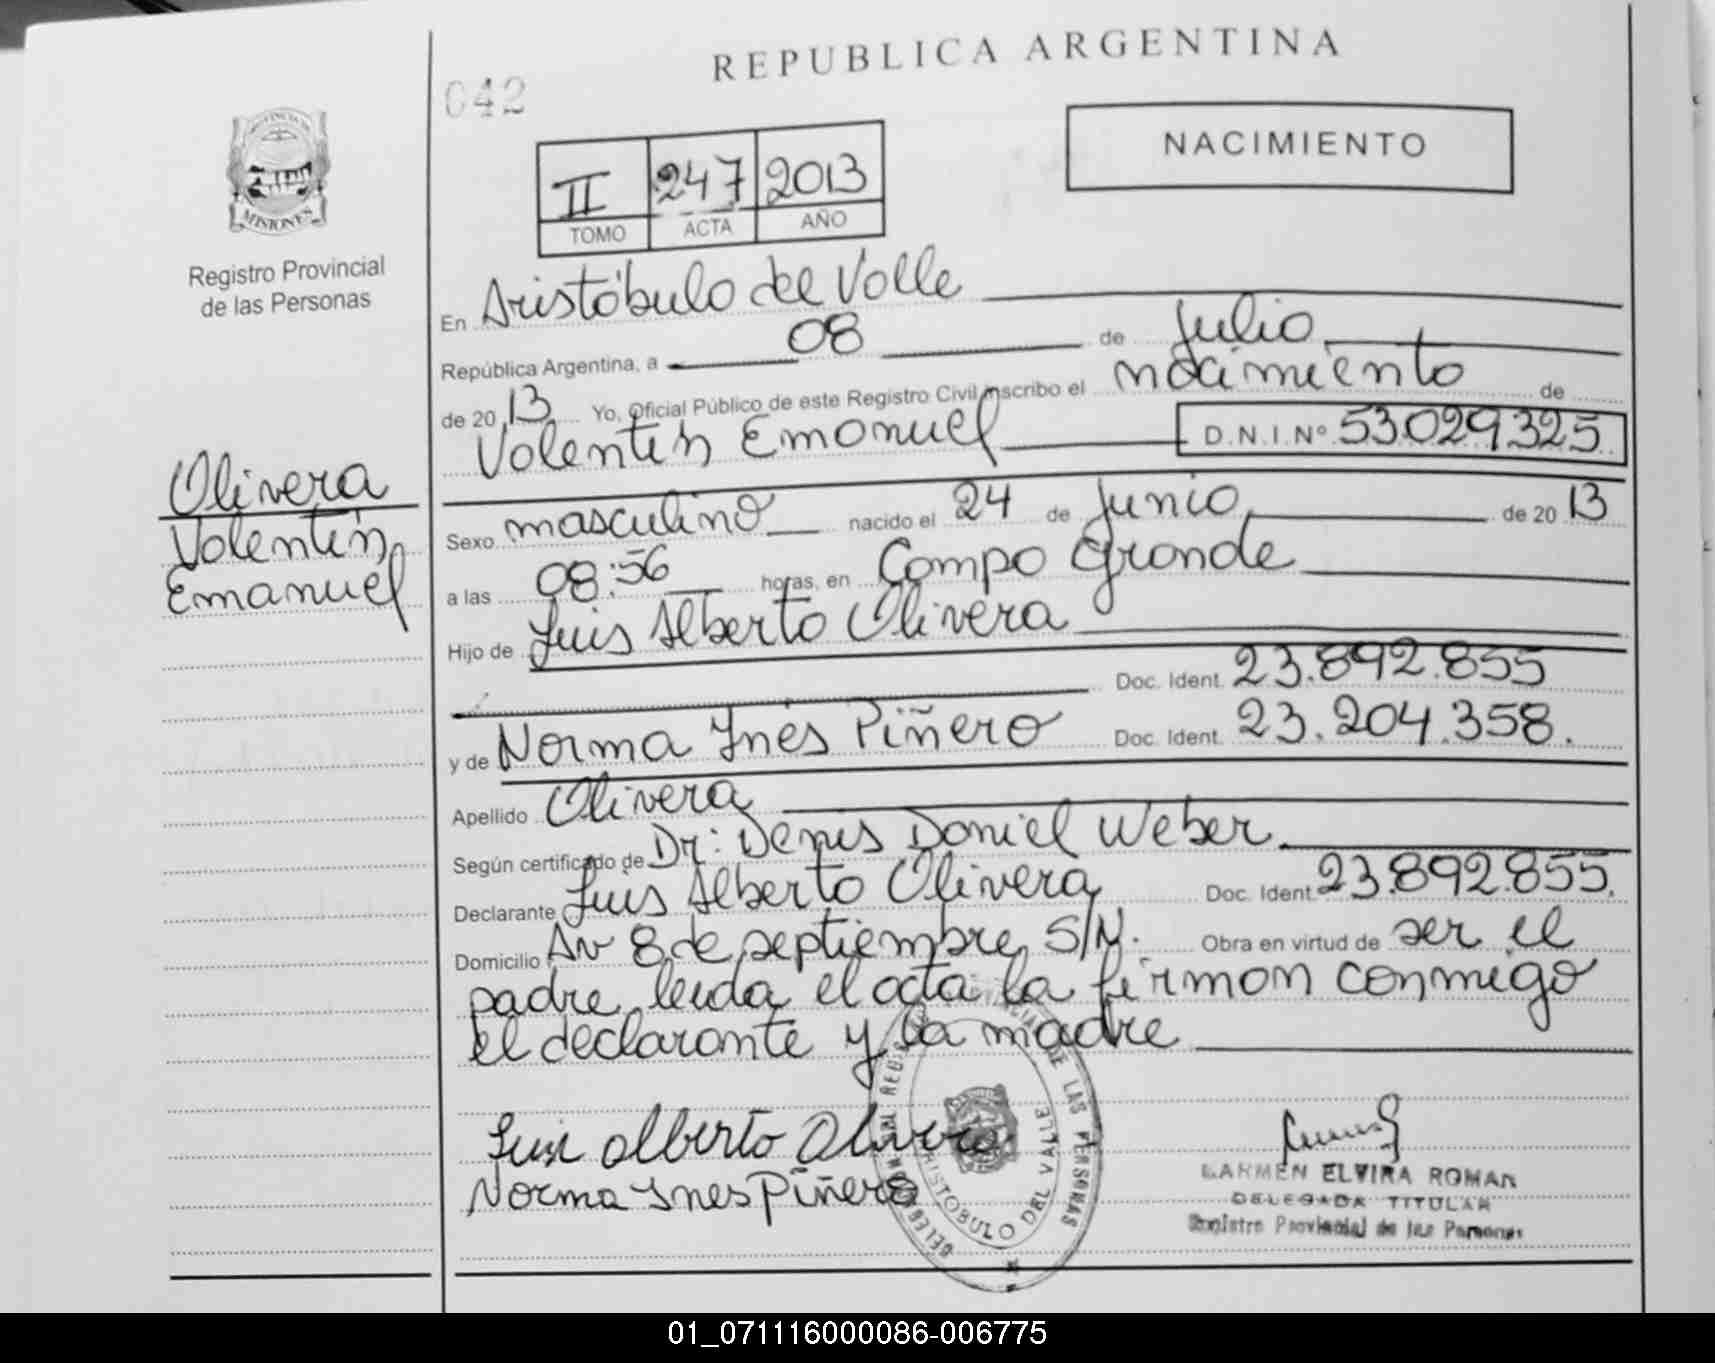 REPUBLICA ARGENTINA
042
NACIMIENTO
II 247 2013
TOMO ACTA AÑO
MISIONES
Registro Provincial
de las Personas
En Aristóbulo del Valle
República Argentina, a 08 de Julio
de 20 13 Yo, Oficial Público de este Registro Civil inscribo el nacimiento de
Valentín Emanuel D.N.I. Nº 53.029.325.
Olivera
Valentín
Emanuel
Sexo masculino nacido el 24 de Junio de 20 13
a las 08:56 horas, en Campo Grande
Hijo de Luis Alberto Olivera
Doc. Ident. 23.892.855
y de Norma Ynés Piñero Doc. Ident. 23.204.358.
Apellido Olivera
Según certificado de Dr: Denis Daniel Weber.
Declarante Luis Alberto Olivera Doc. Ident. 23.892.855.
Domicilio Av 8 de septiembre S/N. Obra en virtud de ser el
padre, leida el acta la firman conmigo
el declarante y la madre
Luis Alberto Olivera
Norma Ynes Piñero
DE LAS PERSONAS
ARISTOBULO DEL VALLE
CARMEN ELVIRA ROMAN
DELEGADA TITULAR
Registro Provincial de las Personas
01_071116000086-006775